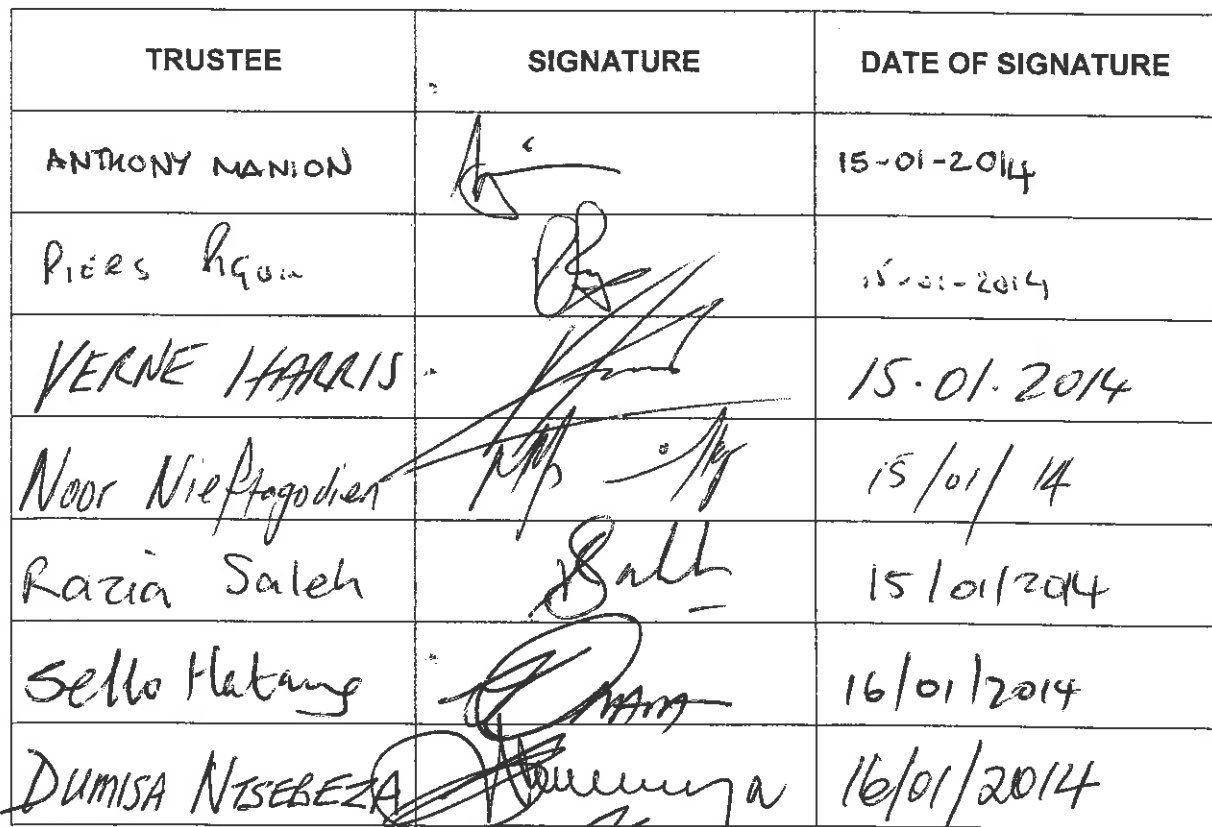 TRUSTEE SIGNATURE DATE OF SIGNATURE
ANTHONY MANION 15-01-2014
PIERS 15-01-2014
VERNE HARRIS 15.01.2014
Noor Nieftagodien 15/01/14
Razia Saleh Saleh 15/01/2014
Sello Hatang 16/01/2014
DUMISA NTSEBEZA 16/01/2014